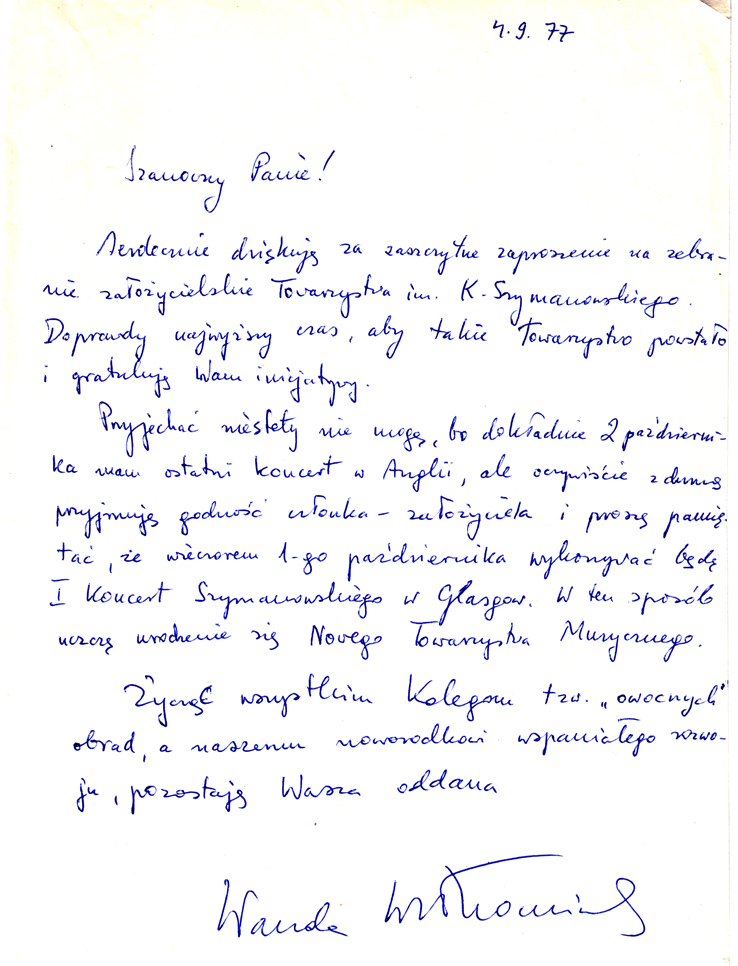 4.9.77
Szanowny Panie!
Serdecznie dziękuję za zaszczytne zaproszenie na zebra-
nie założycielskie Towarzystwa im. K. Szymanowskiego.
Doprawdy najwyższy czas, aby takie Towarzystwo powstało
i gratuluję Wam inicjatywy.
Przyjechać niestety nie mogę, bo dokładnie 2 październi-
ka mam ostatni koncert w Anglii, ale oczywiście z dumą
przyjmuję godność członka-założyciela i proszę pamię-
tać, że wieczorem 1-go października wykonywać będę
I Koncert Szymanowskiego w Glasgow. W ten sposób
uczczę urodzenie się Nowego Towarzystwa Muzycznego.
Życząc wszystkim Kolegom tzw. „owocnych"
obrad, a naszemu noworodkowi wspaniałego rozwo-
ju, pozostaję Wasza oddana
Wanda Wiłkomirska